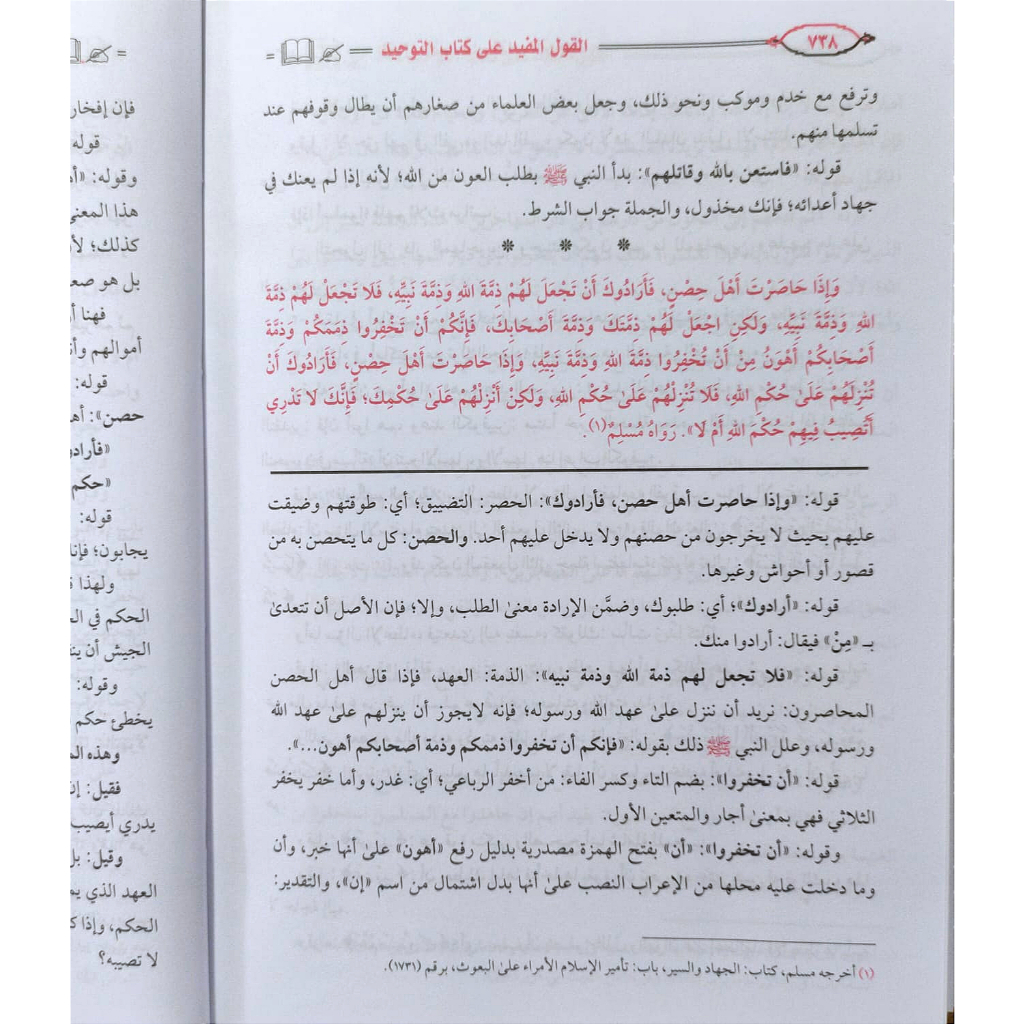 ٧٣٨
القول المفيد على كتاب التوحيد
وترفع مع خدم وموكب ونحو ذلك، وجعل بعض العلماء من صغارهم أن يطال وقوفهم عند
تسلمها منهم.
قوله: «فاستعن بالله وقاتلهم»: بدأ النبي ﷺ بطلب العون من الله؛ لأنه إذا لم يعنك في
جهاد أعدائه؛ فإنك مخذول، والجملة جواب الشرط.
* * *
وَإِذَا حَاصَرْتَ أَهْلَ حِصْنٍ، فَأَرَادُوكَ أَنْ تَجْعَلَ لَهُمْ ذِمَّةَ اللهِ وَذِمَّةَ نَبِيِّهِ، فَلَا تَجْعَلْ لَهُمْ ذِمَّةَ
اللهِ وَذِمَّةَ نَبِيِّهِ، وَلَكِنِ اجْعَلْ لَهُمْ ذِمَّتَكَ وَذِمَّةَ أَصْحَابِكَ، فَإِنَّكُمْ أَنْ تُخْفِرُوا ذِمَمَكُمْ وَذِمَّةَ
أَصْحَابِكُمْ أَهْوَنُ مِنْ أَنْ تُخْفِرُوا ذِمَّةَ اللهِ وَذِمَّةَ نَبِيِّهِ، وَإِذَا حَاصَرْتَ أَهْلَ حِصْنٍ، فَأَرَادُوكَ أَنْ
تُنْزِلَهُمْ عَلَىٰ حُكْمِ اللهِ، فَلَا تُنْزِلْهُمْ عَلَىٰ حُكْمِ اللهِ، وَلَكِنْ أَنْزِلْهُمْ عَلَىٰ حُكْمِكَ؛ فَإِنَّكَ لَا تَدْرِي
أَتُصِيبُ فِيهِمْ حُكْمَ اللهِ أَمْ لَا». رَوَاهُ مُسْلِمٌ(١).
قوله: «وإذا حاصرت أهل حصن، فأرادوك»: الحصر: التضييق؛ أي: طوقتهم وضيقت
عليهم بحيث لا يخرجون من حصنهم ولا يدخل عليهم أحد. والحصن: كل ما يتحصن به من
قصور أو أحواش وغيرها.
قوله: «أرادوك»؛ أي: طلبوك، وضمَّن الإرادة معنىٰ الطلب، وإلا؛ فإن الأصل أن تتعدىٰ
بـ «مِنْ» فيقال: أرادوا منك.
قوله: «فلا تجعل لهم ذمة الله وذمة نبيه»: الذمة: العهد، فإذا قال أهل الحصن
المحاصرون: نريد أن ننزل علىٰ عهد الله ورسوله؛ فإنه لايجوز أن ينزلهم علىٰ عهد الله
ورسوله، وعلل النبي ﷺ ذلك بقوله: «فإنكم أن تخفروا ذممكم وذمة أصحابكم أهون...».
قوله: «أن تخفروا»: بضم التاء وكسر الفاء: من أخفر الرباعي؛ أي: غدر، وأما خفر يخفر
الثلاثي فهي بمعنىٰ أجار والمتعين الأول.
وقوله: «أن تخفروا»: «أن» بفتح الهمزة مصدرية بدليل رفع «أهون» علىٰ أنها خبر، وأن
وما دخلت عليه محلها من الإعراب النصب علىٰ أنها بدل اشتمال من اسم «إن»، والتقدير:
(١) أخرجه مسلم، كتاب: الجهاد والسير، باب: تأمير الإسلام الأمراء علىٰ البعوث، برقم (١٧٣١).
فإن إفخار
قوله
وقوله:
هذا المعنى
كذلك؛
بل هو
فهنا
أموالهم
قوله:
حصن»:
«حكم
قوله:
يجابون؛
ولهذا
الحكم في
الجيش أن
وقوله:
يخطئ حكم
وهذه
فقيل:
يدري أيصيب
وقيل:
العهد الذي
الحكم، وإذا
لا تصيبه؟